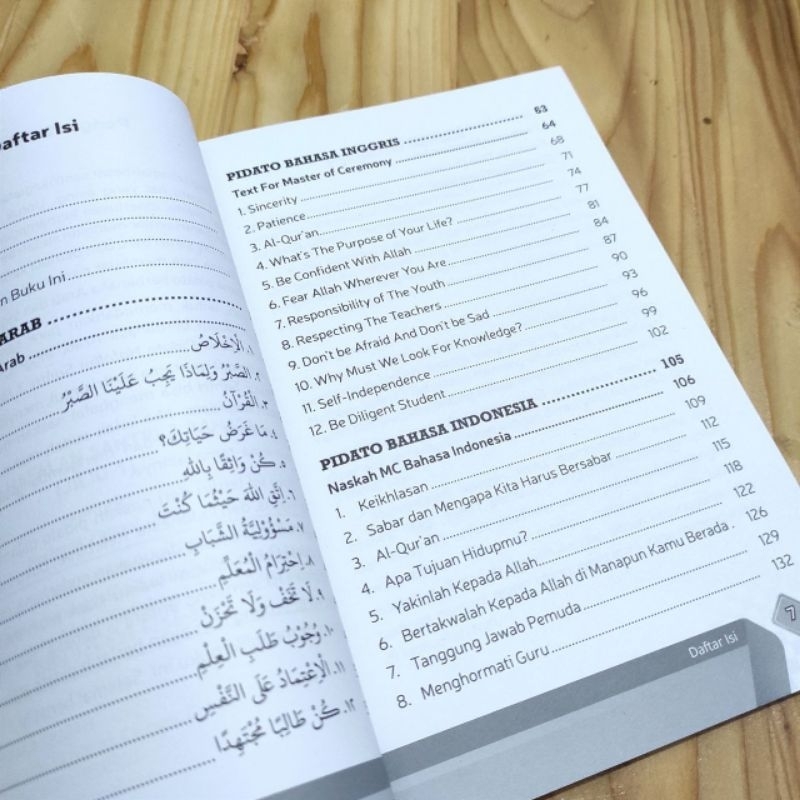 aftar Isi
n Buku Ini
ARAB
Arab
١. الْإِخْلَاصُ
٢. الصَّبْرُ وَلِمَاذَا يَجِبُ عَلَيْنَا الصَّبْرُ
٣. الْقُرْآنُ
٤. مَا غَرَضُ حَيَاتِكَ؟
٥. كُنْ وَاثِقًا بِاللهِ
٦. اِتَّقِ اللهَ حَيْثُمَا كُنْتَ
٧. مَسْؤُوْلِيَّةُ الشَّبَابِ
٨. اِحْتِرَامُ الْمُعَلِّمِ
٩. لَا تَخَفْ وَلَا تَحْزَنْ
١٠. وُجُوْبُ طَلَبِ الْعِلْمِ
١١. الْاِعْتِمَادُ عَلَى النَّفْسِ
١٢. كُنْ طَالِبًا مُجْتَهِدًا
PIDATO BAHASA INGGRIS 63
Text For Master of Ceremony 64
1. Sincerity 68
2. Patience 71
3. Al-Qur'an 74
4. What's The Purpose of Your Life? 77
5. Be Confident With Allah 81
6. Fear Allah Wherever You Are 84
7. Responsibility of The Youth 87
8. Respecting The Teachers 90
9. Don't be Afraid And Don't be Sad 93
10. Why Must We Look For Knowledge? 96
11. Self-Independence 99
12. Be Diligent Student 102
PIDATO BAHASA INDONESIA 105
Naskah MC Bahasa Indonesia 106
1. Keikhlasan 109
2. Sabar dan Mengapa Kita Harus Bersabar 112
3. Al-Qur'an 115
4. Apa Tujuan Hidupmu? 118
5. Yakinlah Kepada Allah 122
6. Bertakwalah Kepada Allah di Manapun Kamu Berada . 126
7. Tanggung Jawab Pemuda 129
8. Menghormati Guru 132
Daftar Isi 7